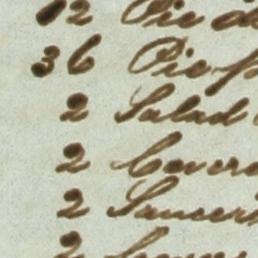 12 Pie di
36 Pie p
2 Salad
2 Cover
2 Saucer
2